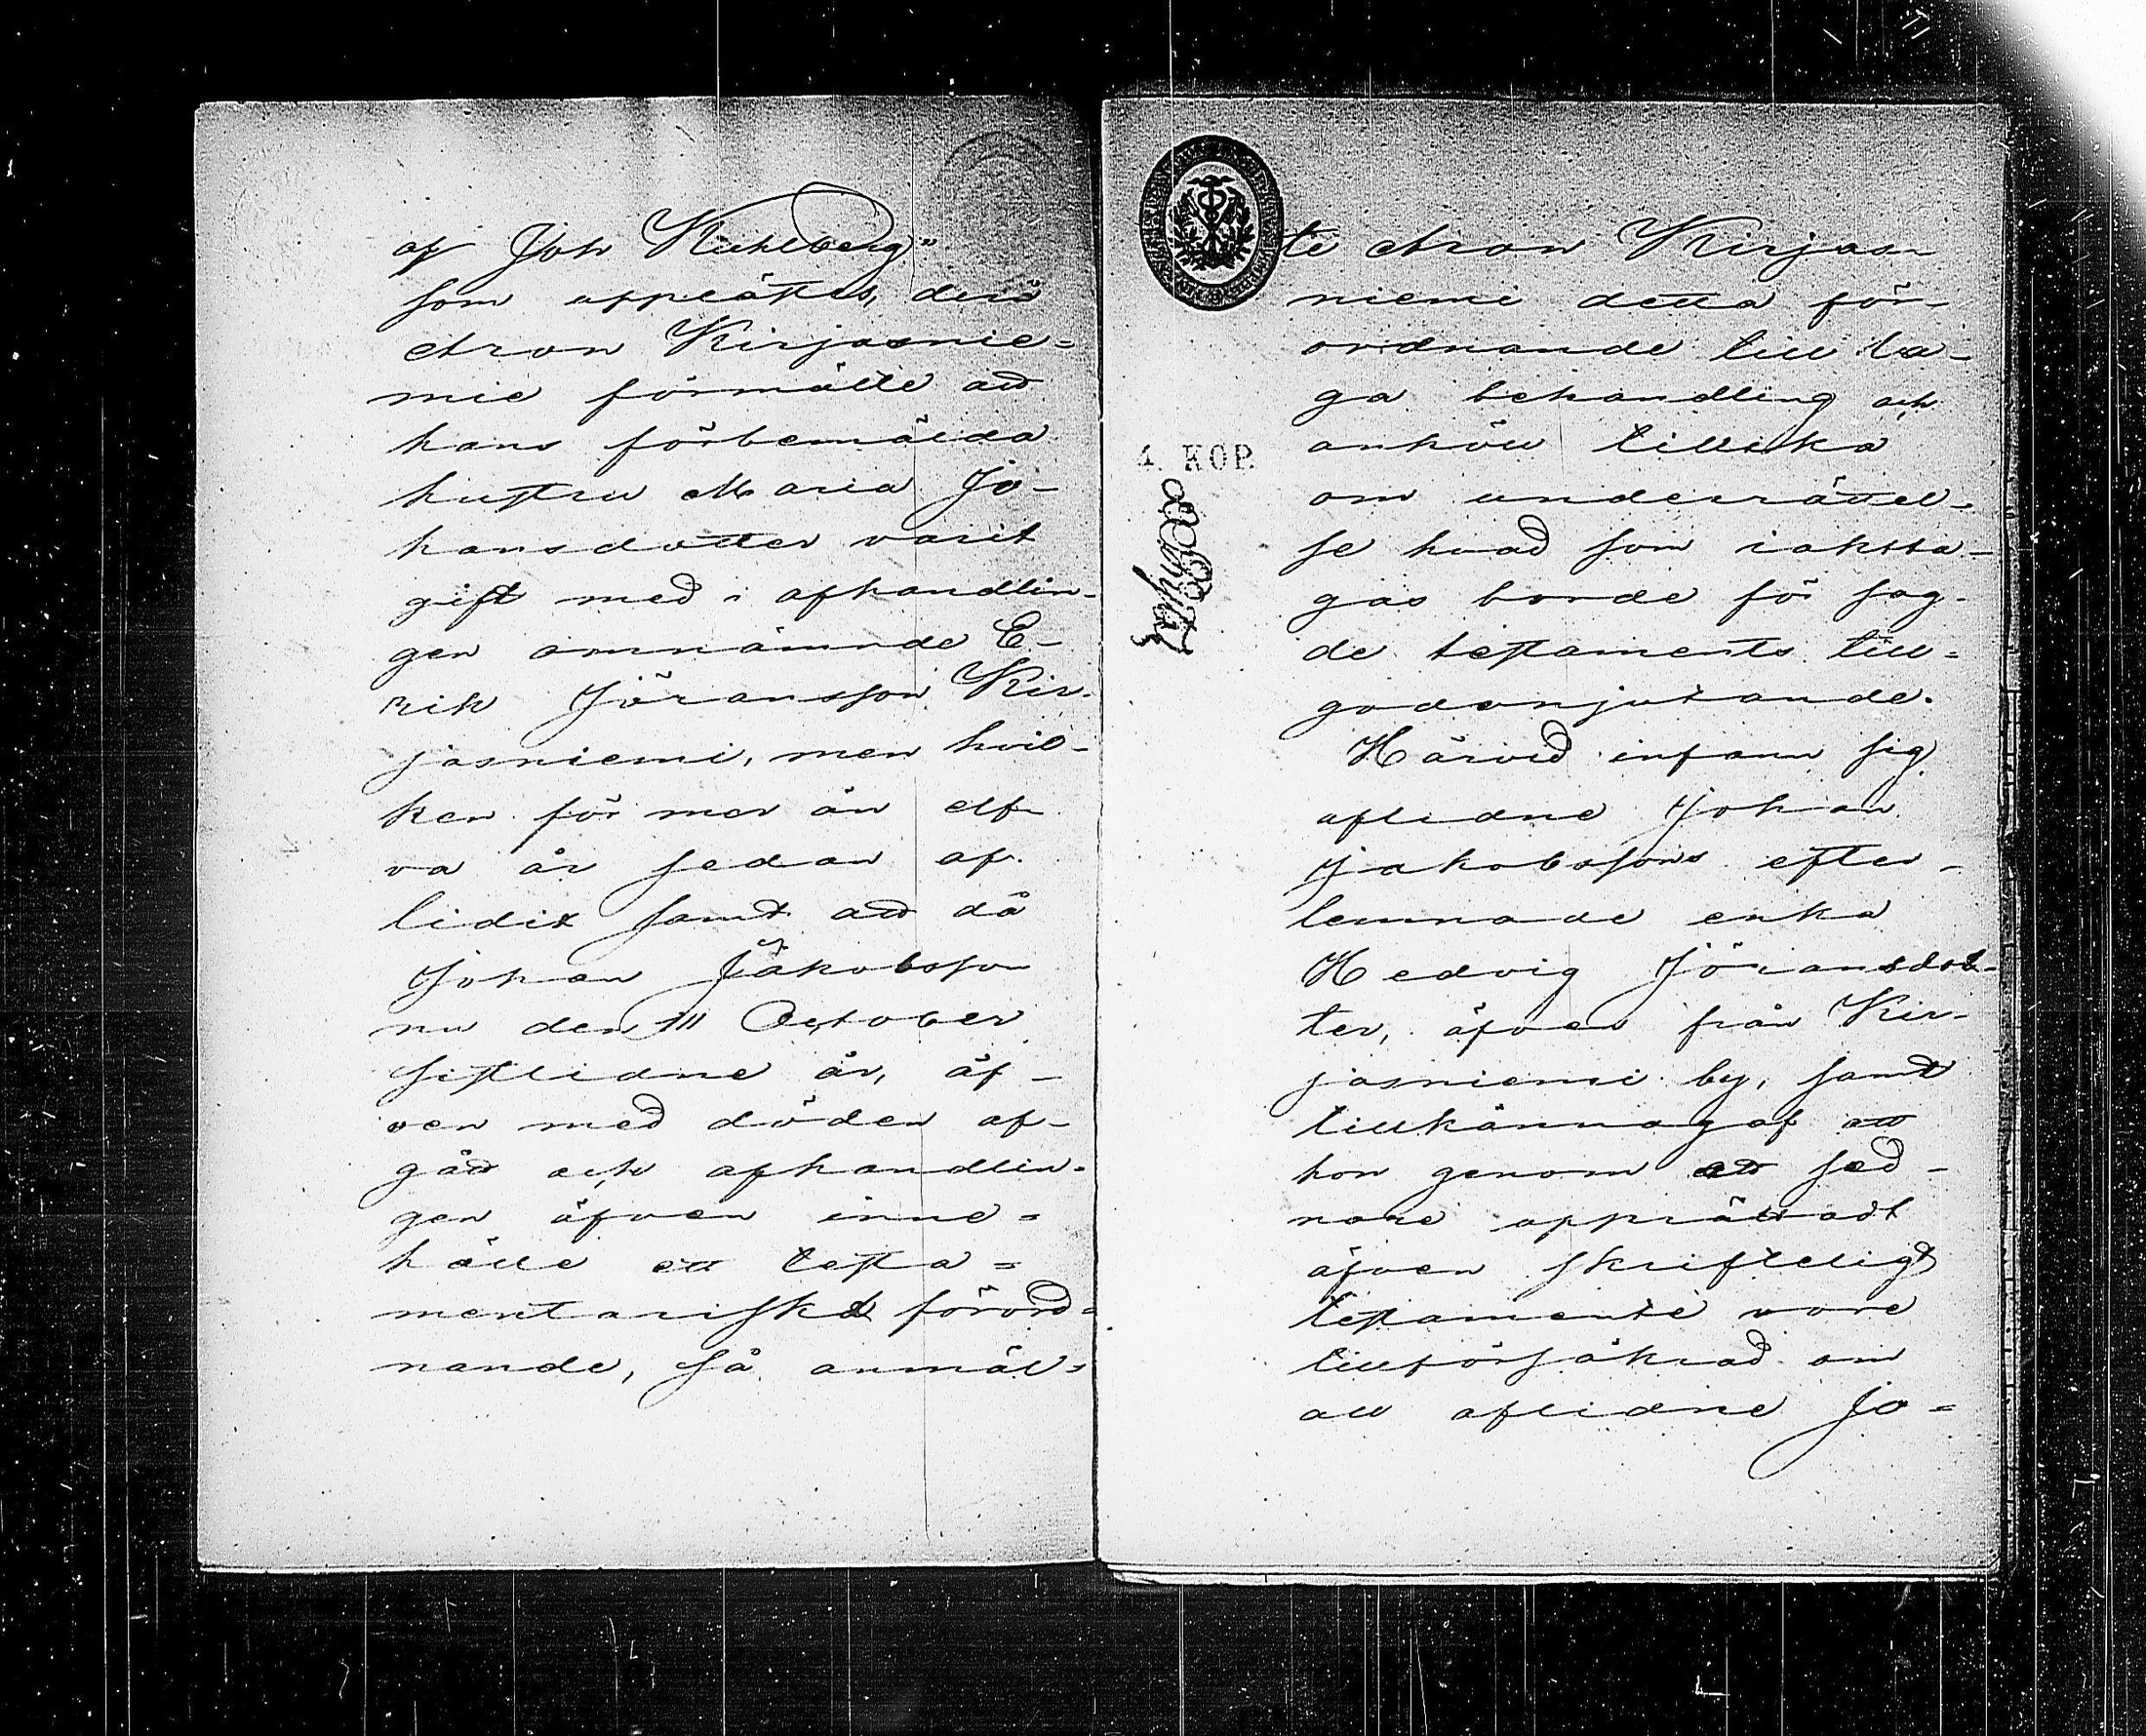 af Joh Kuhlberg"
som upplästes, derå
Aron Kirjasnie=
mie förmälte att
hans förbemälda
hustru Maria Jo-
hansdotter varit
gift med i afhandlin-
gen omnämnde E-
rik Jöransson Kir-
jasniemi, men hvil-
ken för mer än elf-
va år sedan af-
lidit samt att då
Johan Jakobsson
nu den 111 October
sistlidne år, äf-
ven med döden af-
gått och afhandlin-
gen äfven inne=
hålle ett testa=
mentariskt förord=
nande, så anmäl=
te Aron Kirjas-
niemi detta för-
ordnande till la-
ga behandling och
anhöll tillika
om underrättel-
se hvad som iaktta-
gas borde för sag-
de testaments till=
godonjutande.
Härvid infann sig
aflidne Johan
Jakobssons efter-
lemnade enka
Hedvig Jöransdot-
ter, äfven från Kir-
jasniemi by, samt
tillkännagaf att
hon genom ett sed-
nare upprättadt
äfven skriftligt
testamente vore
tillförsäkrad om
all aflidne Jo=
4 KOP.